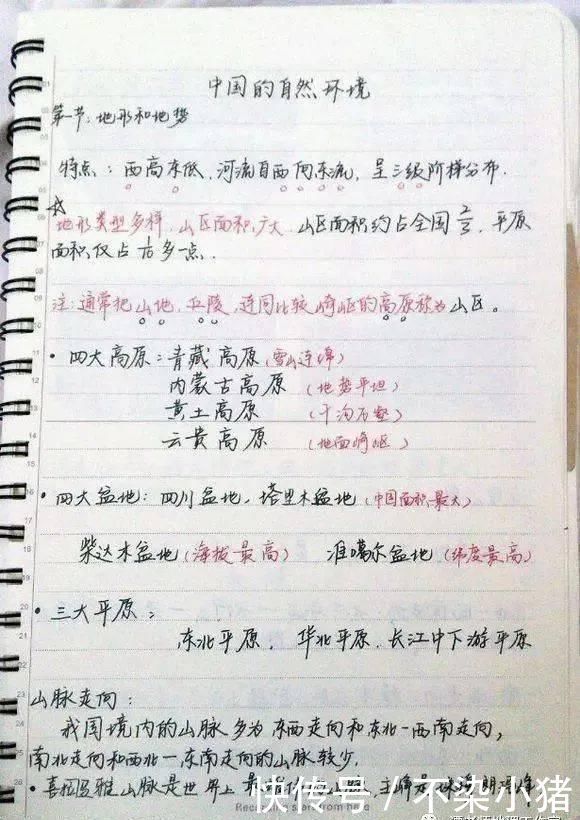 中国的自然环境
第一节:地形和地势
特点:西高东低,河流自西向东流,呈三级阶梯分布.
☆
地形类型多样,山区面积广大.山区面积约占全国2/3,平原
面积仅占1/10多一点.
注:通常把山地,丘陵,连同比较崎岖的高原称为山区。
• 四大高原:青藏高原(雪山连绵)
内蒙古高原 (地势平坦)
黄土高原 (千沟万壑)
云贵高原 (地面崎岖)
• 四大盆地:四川盆地,塔里木盆地(中国面积最大)
柴达木盆地(海拔最高) 准噶尔盆地(纬度最高)
• 三大平原:
东北平原,华北平原,长江中下游平原
山脉走向:
我国境内的山脉多为东西走向和东北-西南走向,
南北走向和西北-东南走向的山脉较少.
• 喜玛拉雅山脉是世界上最
主峰是
快传号 / 不染小猪